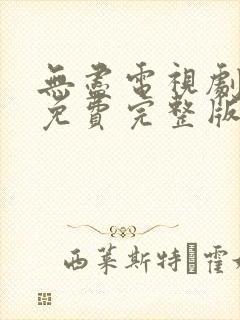 無盡電視劇
免費完整版
西萊斯特�霍